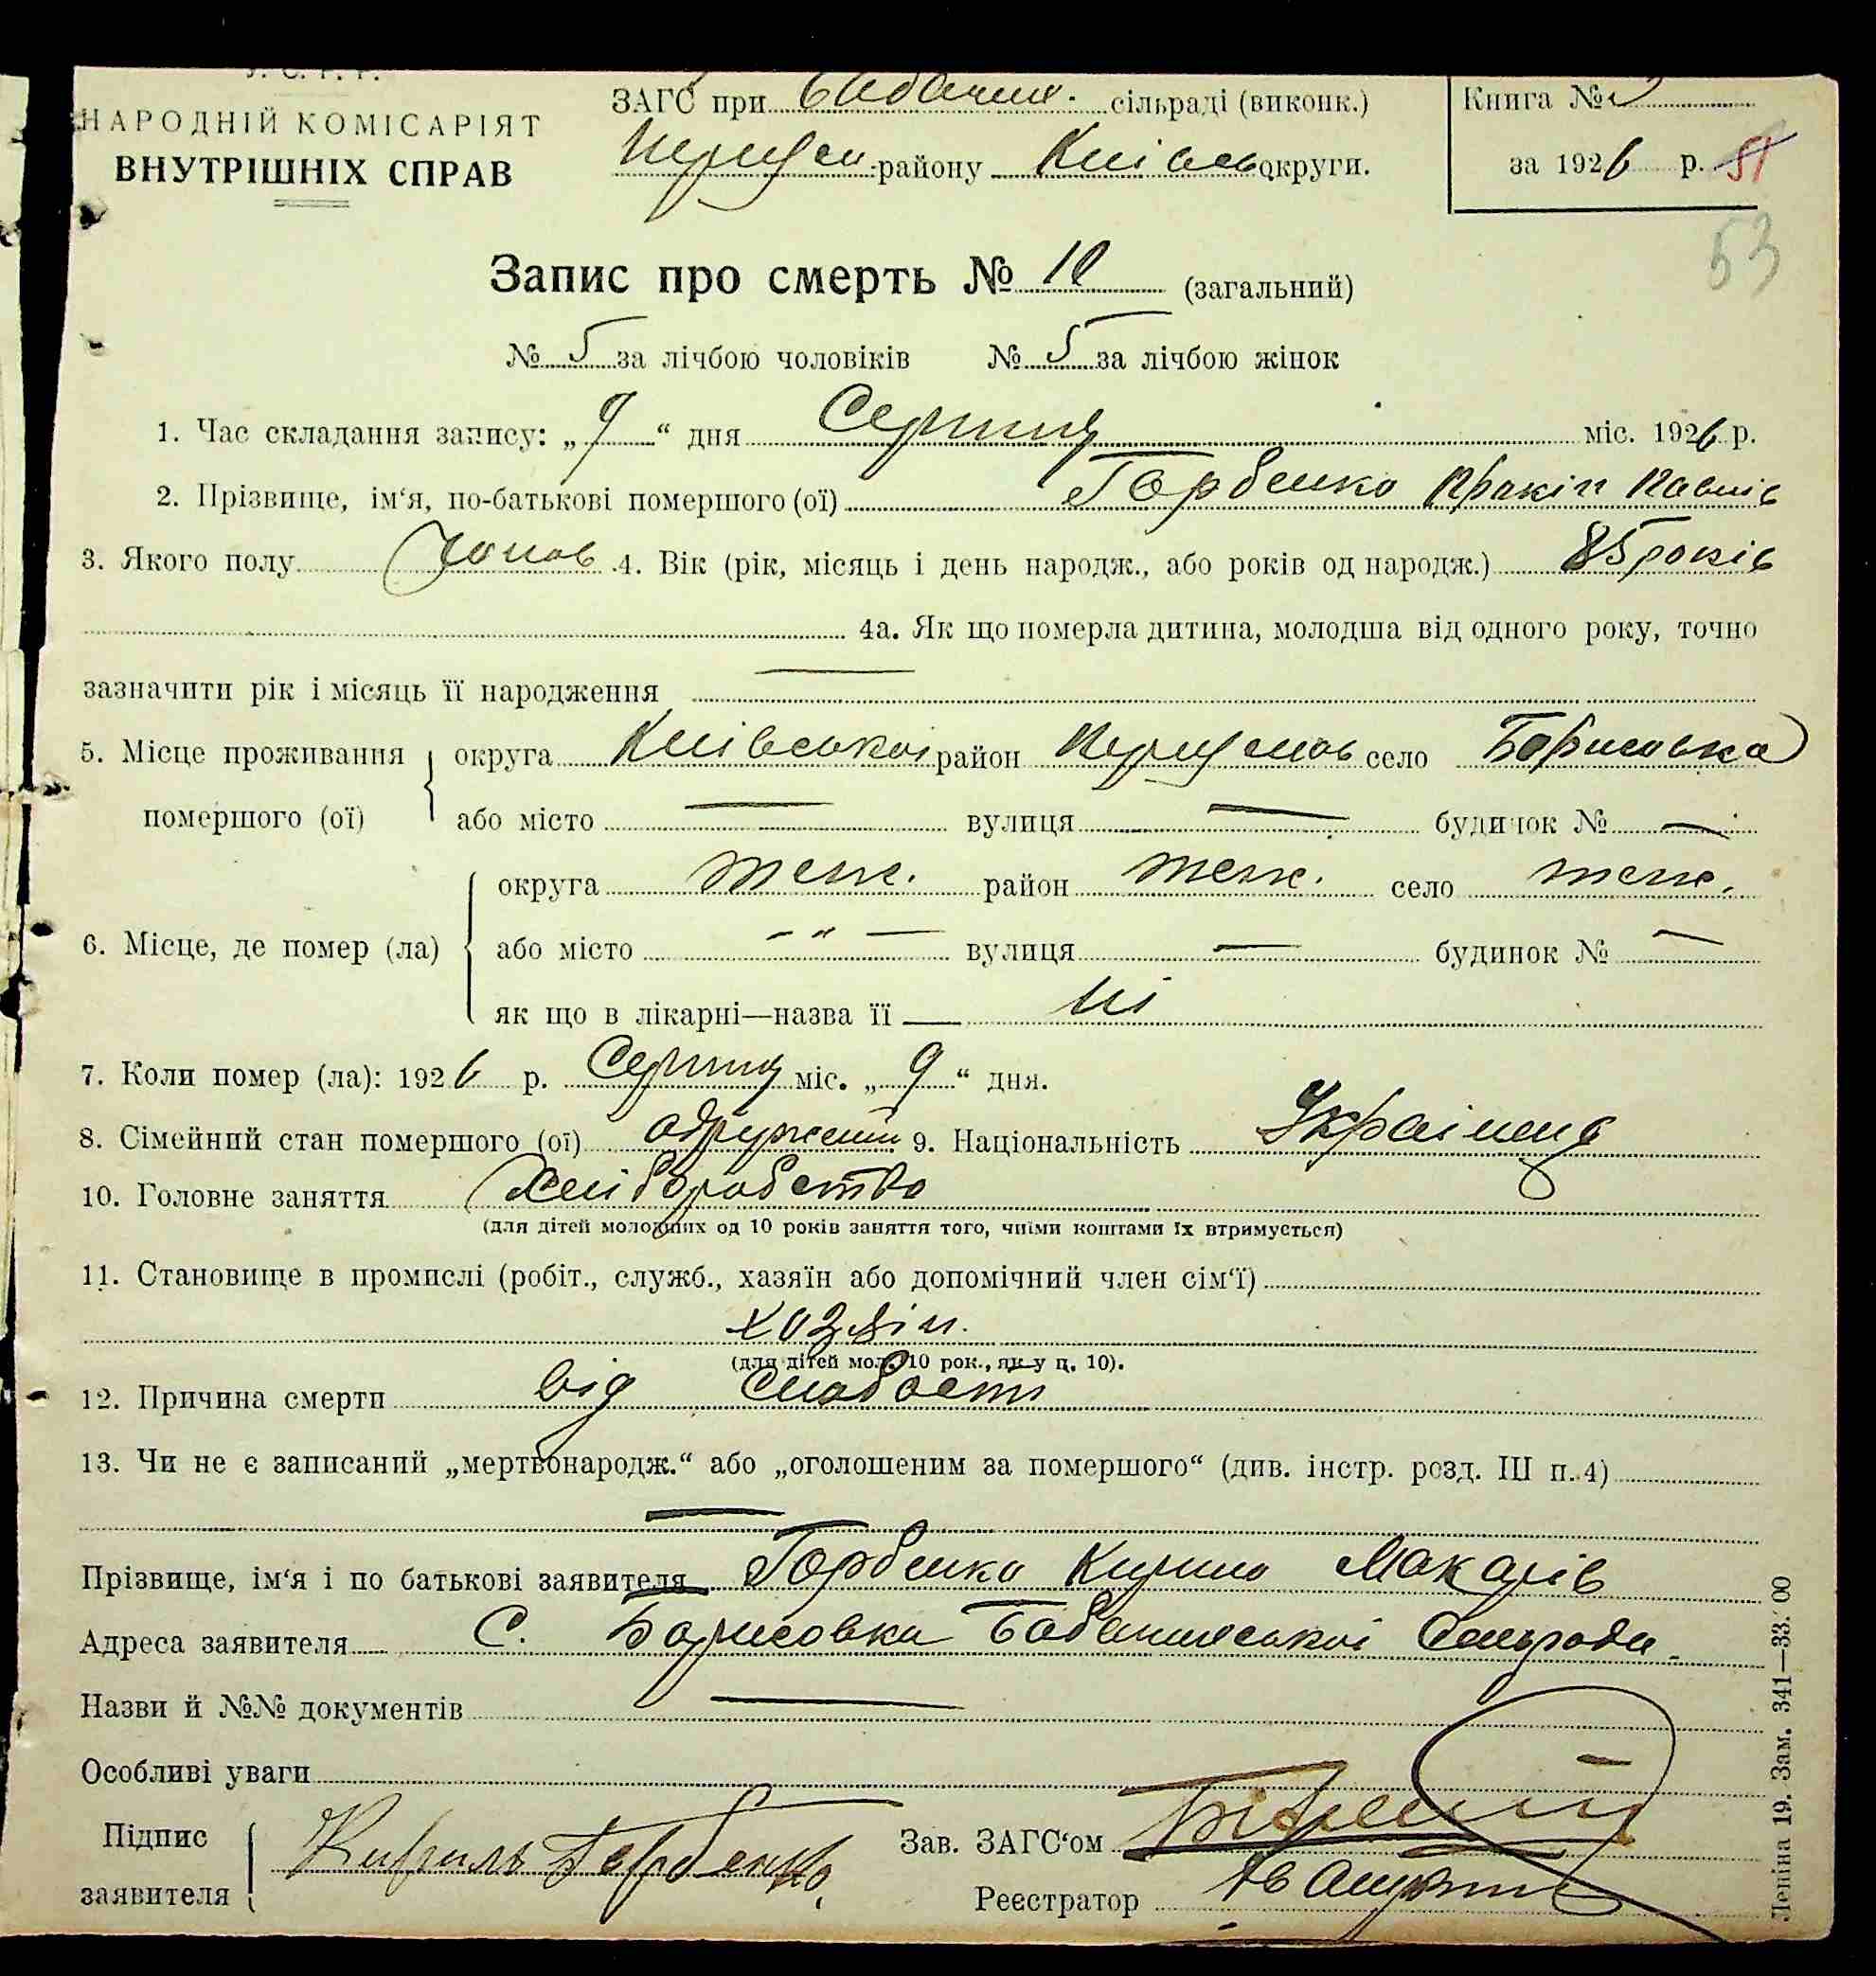 У. С. Р. Р.
НАРОДНІЙ КОМІСАРІЯТ
ВНУТРІШНІХ СПРАВ
ЗАГС при сільраді (виконк.)
району Київськ округи.
Книга №
за 1926 р. 51
53
Запис про смерть № 10 (загальний)
№ 5 за лічбою чоловіків № 5 за лічбою жінок
1. Час складання запису: „9“ дня Серпня міс. 1926 р.
2. Прізвище, ім‘я, по-батькові помершого (ої) Горбенко Пракіп Павлів
3. Якого полу Чолов 4. Вік (рік, місяць і день народж., або років од народж.) 85 років
4а. Як що померла дитина, молодша від одного року, точно
зазначити рік і місяць її народження —
5. Місце проживання помершого (ої) округа Київської район село Борисовка
або місто — вулиця — будинок № —
6. Місце, де помер (ла) округа теж. район теж. село теж.
або місто - „ — вулиця — будинок № —
як що в лікарні—назва її — ні
7. Коли помер (ла): 1926 р. Серпня міс. „9“ дня.
8. Сімейний стан помершого (ої) одружений 9. Національність Українець
10. Головне заняття Хліборобство
(для дітей молодших од 10 років заняття того, чиїми коштами їх втримується)
11. Становище в промислі (робіт., служб., хазяїн або допомічний член сім‘ї)
хозяїн.
(для дітей мол. 10 рок., як у п. 10).
12. Причина смерти від слабости
13. Чи не є записаний „мертвонародж.“ або „оголошеним за помершого“ (див. інстр. розд. III п. 4)
—
Прізвище, ім‘я і по батькові заявителя Горбенко Кирило Макарів
Адреса заявителя С. Борисовка Бабанської Сельради
Назви й №№ документів —
Особливі уваги
Підпис заявителя Кирилъ Горбенко
Зав. ЗАГС‘ом
Реєстратор
Леніна 19. Зам. 341—33.000